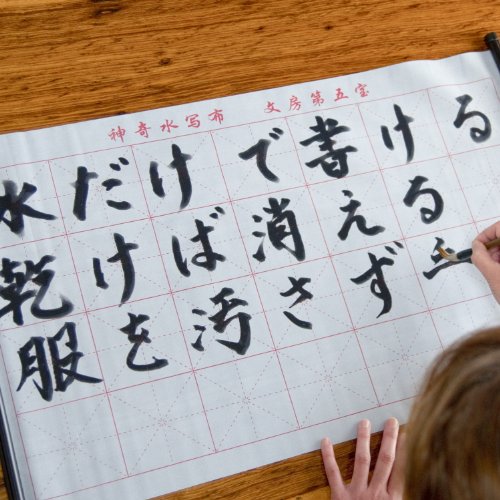 神奇水写布 文房第五宝
水だけで書ける
乾けば消える
服を汚さず